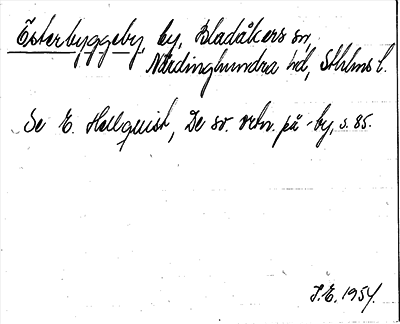 Österbyggeby, by, Bladåkers sn,
Närdinghundra hd, Sthlms l.
Se E. Hellquist, De sv. ortn. på -by, s. 85.
I.E. 1954.